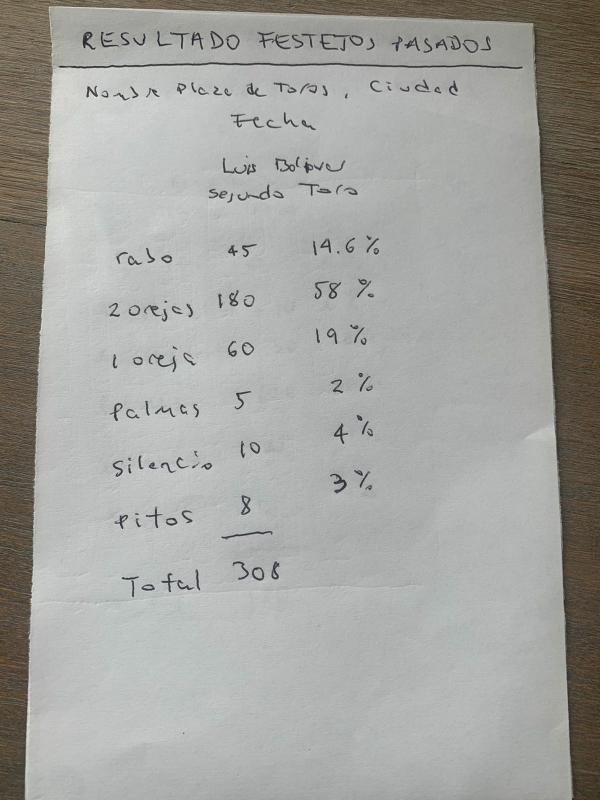 RESULTADO FESTEJOS PASADOS
Nombre Plaza de Toros, Ciudad
Fecha
Luis Bolivar
segundo Toro
rabo 45 14.6%
2 orejas 180 58%
1 oreja 60 19%
palmas 5 2%
silencio 10 4%
pitos 8 3%
Total 308